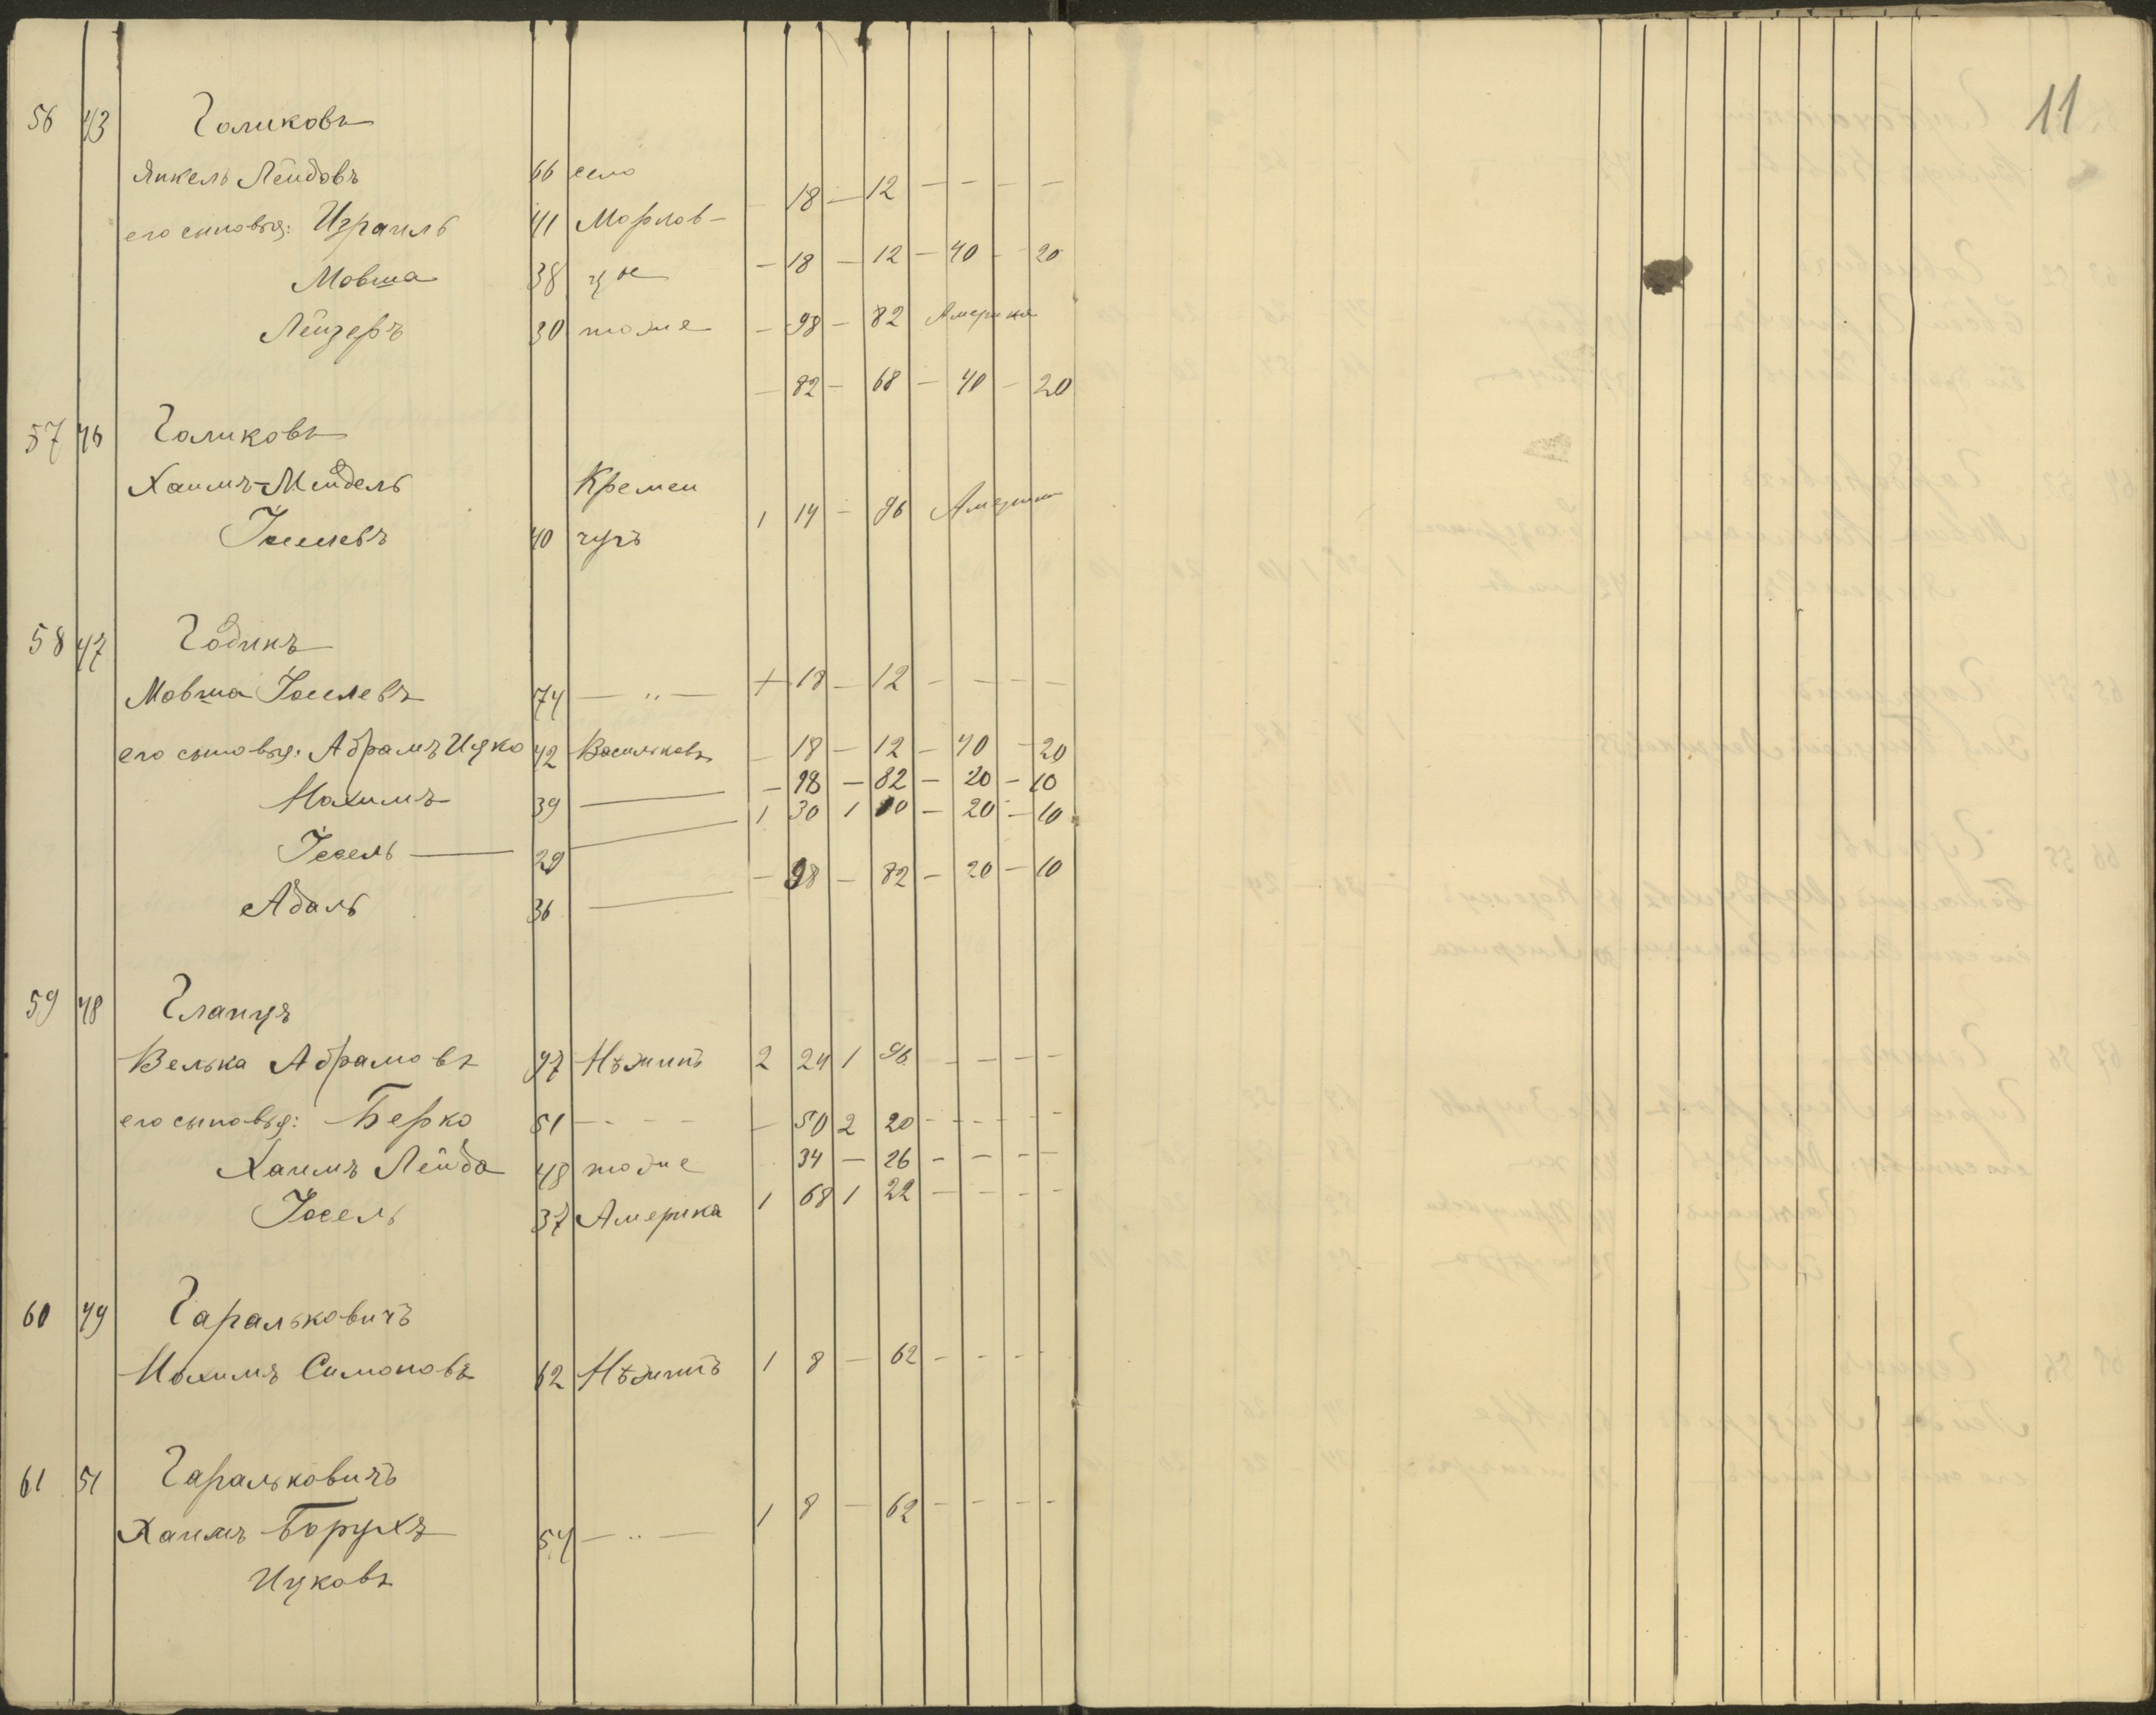 11
56 43 Голиковъ
Янкель Лейбовъ 66 село — 18 — 12 — — — —
его сыновья: Израиль 41 Моргов- — 18 — 12 — 40 — 20
Мовша 38 це — 98 — 82 Америка
Лейзеръ 30 тоже — 82 — 68 — 40 — 20
57 46 Голиковъ
Хаимъ-Мендель Кремен
Іоселевъ 40 чугъ 1 14 — 96 Америка
58 47 Годинъ
Мовша Іоселевъ 74 — " — + 18 — 12 — — — —
его сыновья: Абрамъ Ицко 42 Васильковъ — 18 — 12 — 40 — 20
Нахимъ 39 — — 98 — 82 — 20 — 10
Іосель — 29 — 1 30 1 10 — 20 — 10
Адаль 36 — — 98 — 82 — 20 — 10
59 48 Гланцъ
Велька Абрамовъ 97 Нѣжинъ 2 24 1 96 — — — —
его сыновья: Берко 51 — - — — — 50 2 20 — — — —
Хаимъ Лейба 48 тоже 34 — 26 — — — —
Іосель 37 Америка 1 68 1 22 — — — —
60 49 Гаральковичъ
Нохимъ Симоновъ 62 Нѣжинъ 1 8 — 62 — — — —
61 51 Гаральковичъ
Хаимъ Борухъ 54 — " — 1 8 — 62 — — — —
Ицковъ